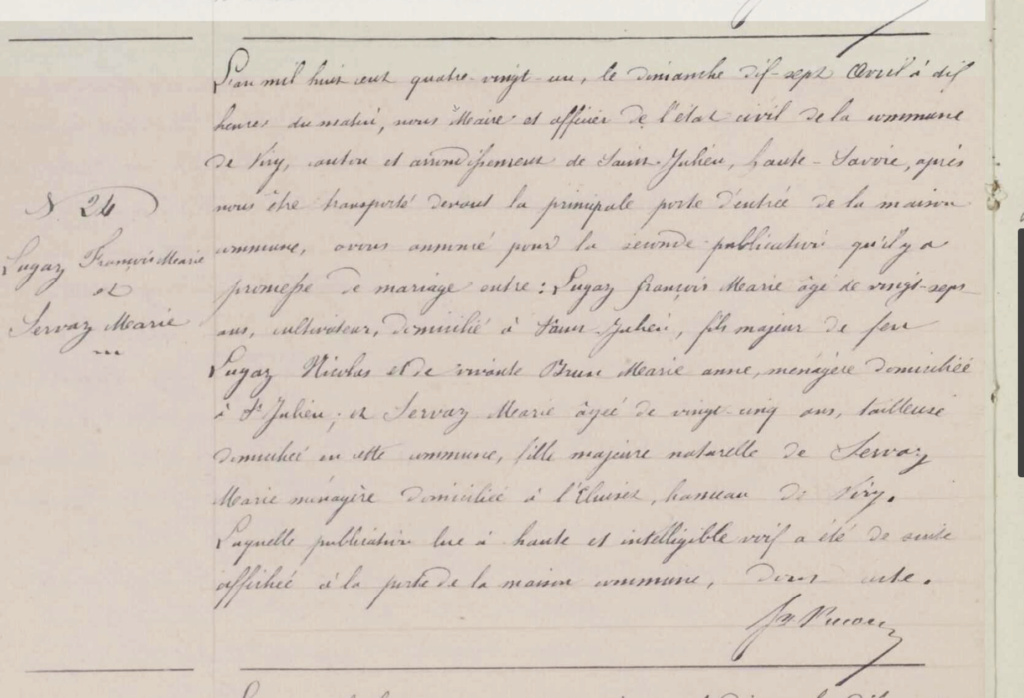 N. 24
Lugaz François Marie
et
Servaz Marie
L'an mil huit cent quatre-vingt-un, le dimanche dix-sept Avril à dix
heures du matin, nous Maire et officier de l'état civil de la commune
de Viry, canton et arrondissement de Saint-Julien, haute-Savoie, après
nous être transporté devant la principale porte d'entrée de la maison
commune, avons annoncé pour la seconde publication qu'il y a
promesse de mariage entre : Lugaz françois Marie âgé de vingt-sept
ans, cultivateur, domicilié à Saint Julien, fils majeur de feu
Lugaz Nicolas et de vivante Marie anne, ménagère domiciliée
à St Julien ; et Servaz Marie âgée de vingt-cinq ans, tailleuse
domiciliée en cette commune, fille majeure naturelle de Servaz
Marie ménagère domiciliée à l'Eluiset, hameau de Viry.
Laquelle publication lue à haute et intelligible voix a été de suite
affichée à la porte de la maison commune, dont acte.